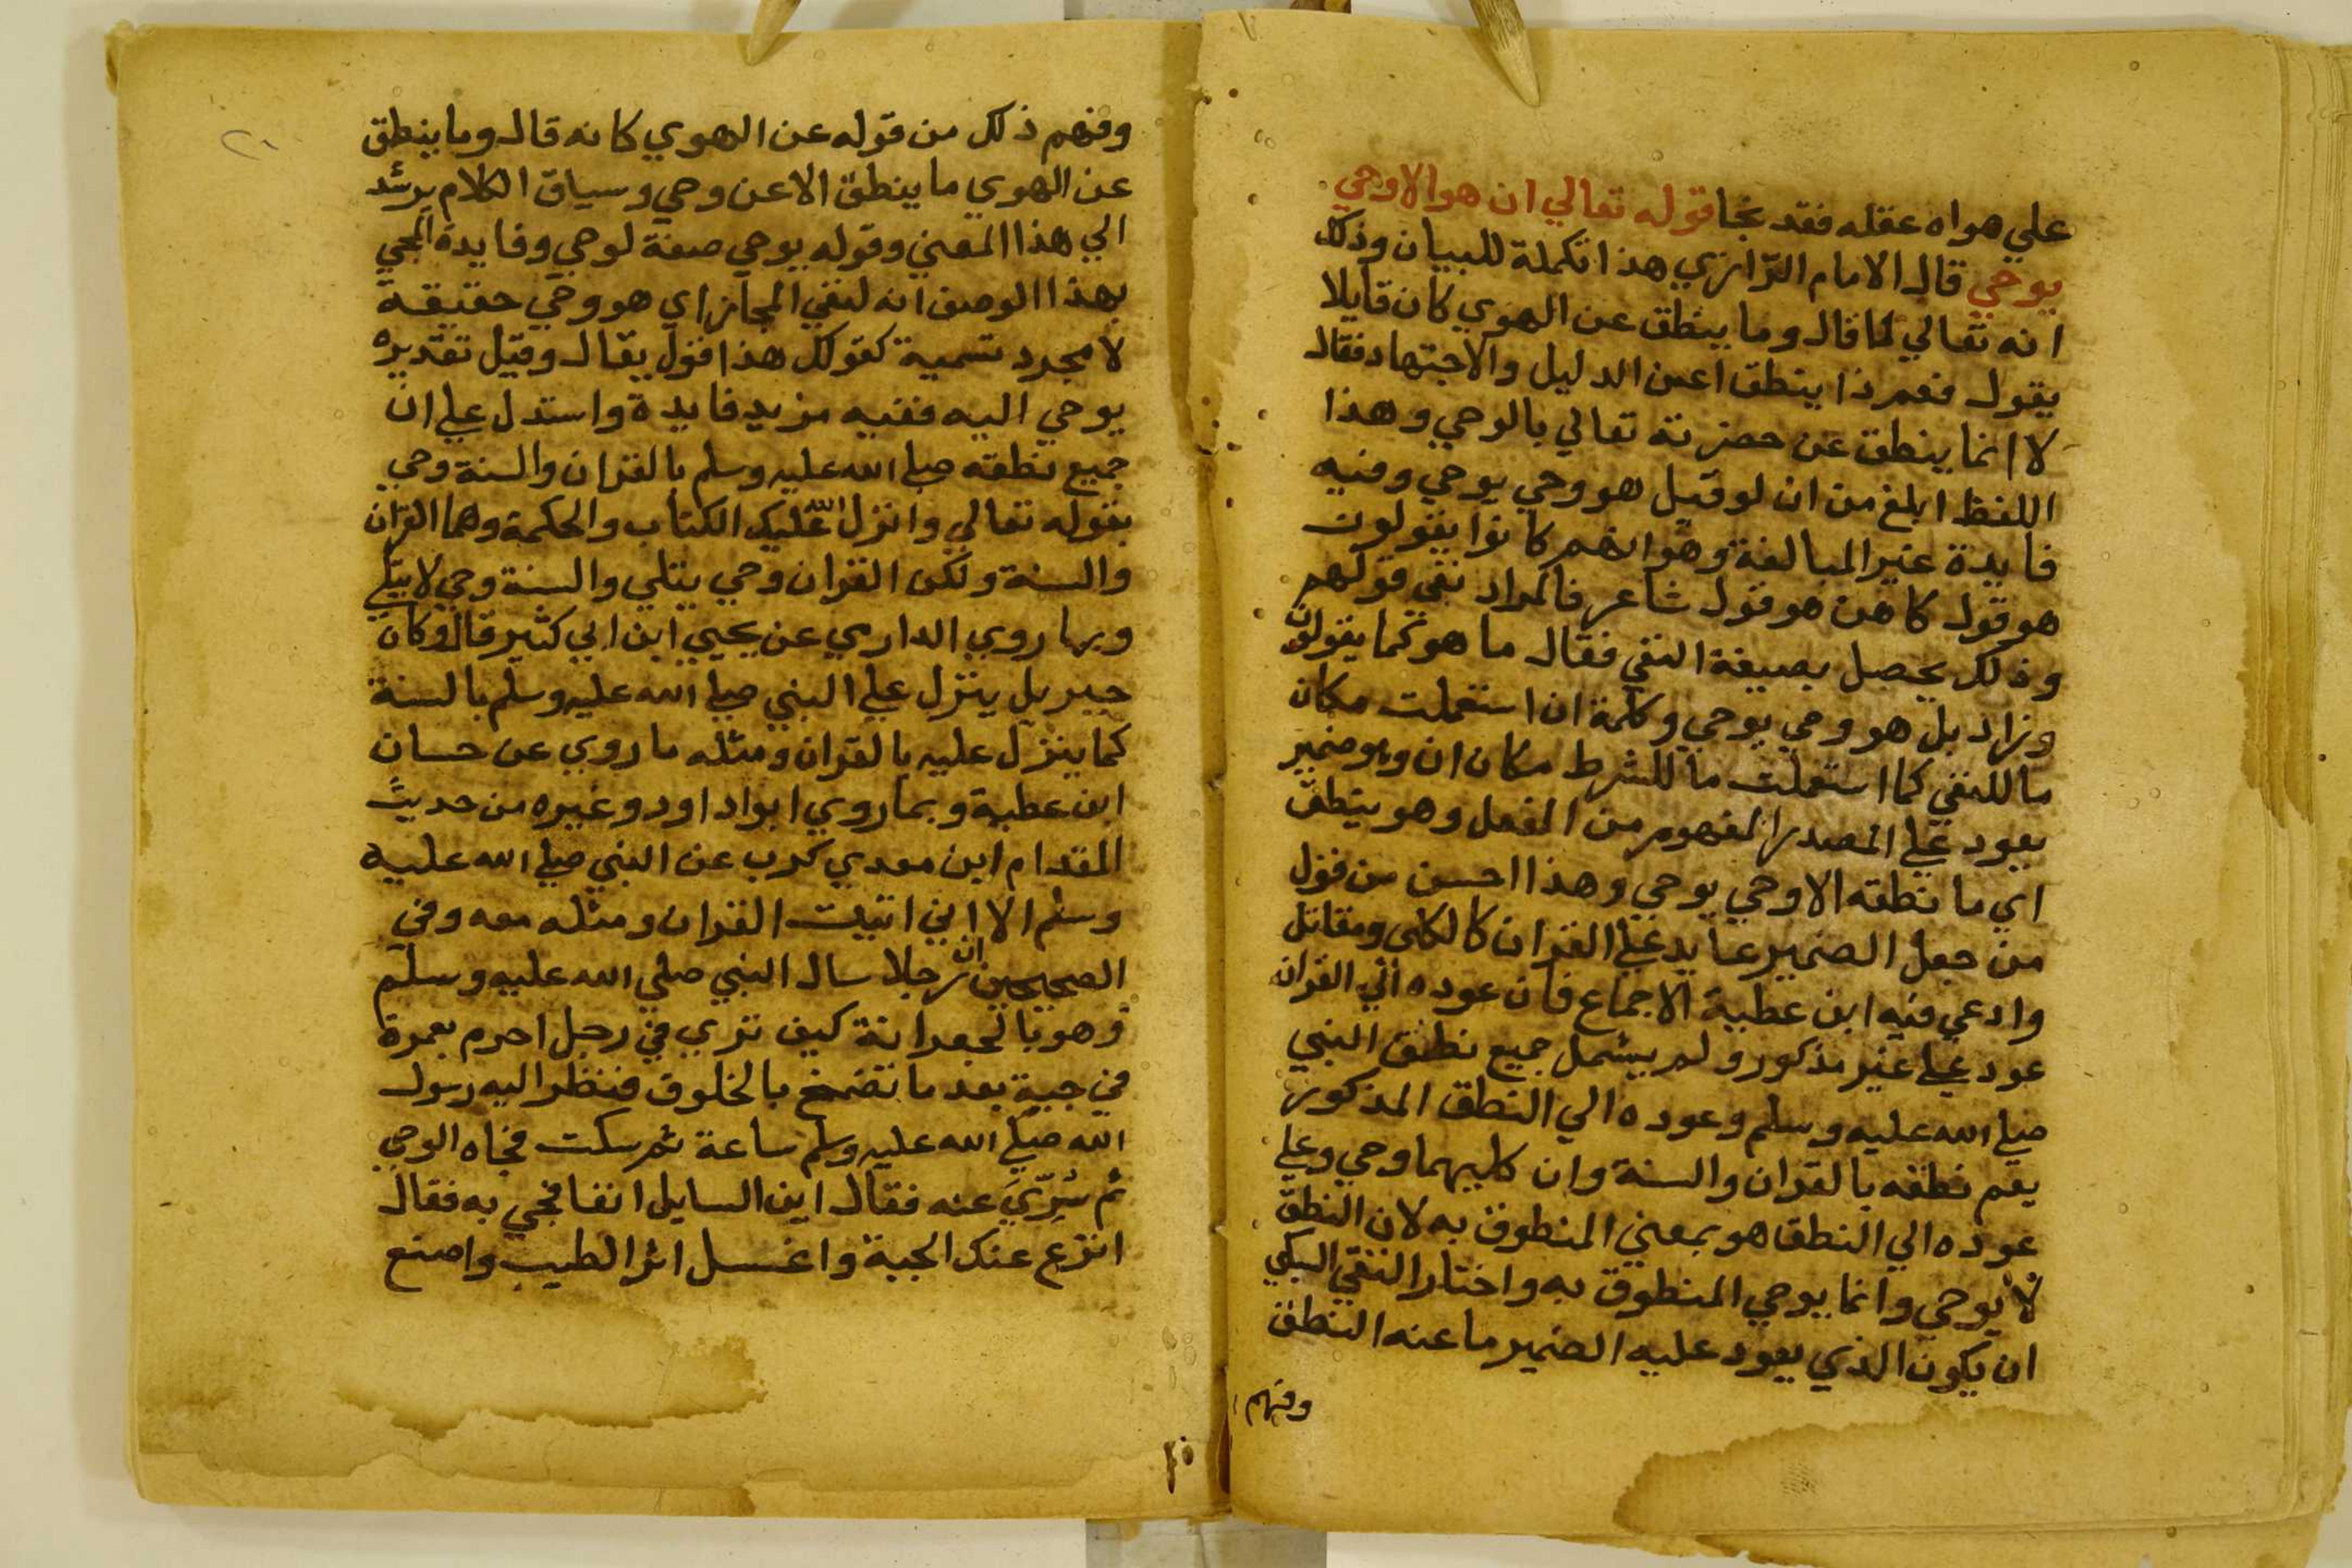 علي هواه عقله فقد نجا قوله تعالي ان هو الا وحي
يوحي قال الامام الرازي هذا تكملة للبيان وذلك
انه تعالي لما قال وما ينطق عن الهوي كان قايلا
يقول فعم ذا ينطق اعن الدليل والاجتهاد فقال
لا انما ينطق عن حضرته تعالي بالوحي وهذا
اللفظ ابلغ من ان لو قيل هو وحي يوحي وفيه
فايدة غير المبالغة وهو انهم كانوا يقولون
هو قول كاهن هو قول شاعر فالمراد نفي قولهم
وذلك يحصل بصيغة النفي فقال ما هو كما يقولون
وزاد بل هو وحي يوحي وكلمة ان استعملت مكان
ما للنفي كما استعملت ما للشرط مكان ان وهو ضمير
يعود علي المصدر المفهوم من الفعل وهو ينطق
اي ما نطقه الا وحي يوحي وهذا احسن من قول
من جعل الضمير عايد علي القران كالكلبي ومقاتل
وادعي فيه ابن عطية الاجماع فان عوده الي القران
عود علي غير مذكور ولم يشمل جميع نطق النبي
صلي الله عليه وسلم وعوده الي النطق المذكور
يعم نطقه بالقران والسنة وان كليهما وحي وعلي
عوده الي النطق هو بمعني المنطوق به لان النطق
لا يوحي وانما يوحي المنطوق به واختار التقي السبكي
ان يكون الذي يعود عليه الضمير ما عنه النطق
وفهم
وفهم ذلك من قوله عن الهوي كانه قال وما ينطق
عن الهوي ما ينطق الا عن وحي وسياق الكلام يرشد
الي هذا المعني وقوله يوحي صفة لوحي وفايدة المجي
بهذا الوصف انه لنفي المجاز اي هو وحي حقيقة
لا مجرد تسمية كقولك هذا قول يقال وقيل تقديره
يوحي اليه ففيه مزيد فايدة واستدل علي ان
جميع نطقه صلي الله عليه وسلم بالقران والسنة وحي
بقوله تعالي وانزل الله عليك الكتاب والحكمة وهما القران
والسنة ولكن القران وحي يتلي والسنة وحي لا يتلي
وبما روي الدارمي عن يحيي ابن ابي كثير قال وكان
جبريل ينزل علي النبي صلي الله عليه وسلم بالسنة
كما ينزل عليه بالقران ومثله ما روي عن حسان
ابن عطية وبما روي ابوا داود وغيره من حديث
المقدام ابن معدي كرب عن النبي صلي الله عليه
وسلم الا اني اتيت القران ومثله معه وفي
الصحيحين ان رجلا سال النبي صلي الله عليه وسلم
وهو بالجعرانة كيف تري في رجل احرم بعمرة
في جبة بعد ما تضمخ بالخلوق فنظر اليه رسول
الله صلي الله عليه وسلم ساعة ثم سكت فجاه الوحي
ثم سُرّيَ عنه فقال اين السايل انفا فجي به فقال
انزع عنك الجبة واغسل اثر الطيب واصنع